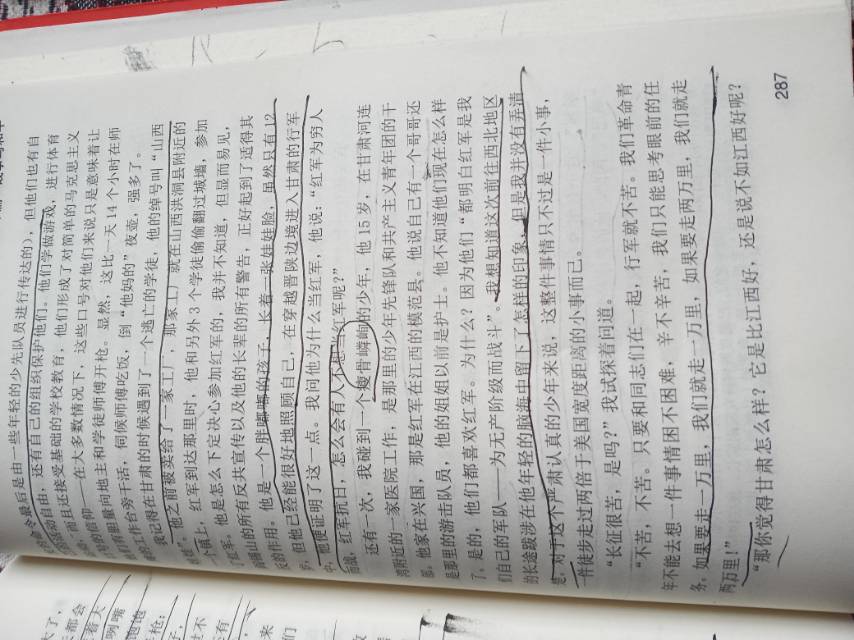 命令最后是由一些年轻的少先队员进行传达的），但他们也有自
活动自由，还有自己的组织保护他们。他们学做游戏，进行体育
而且还接受基础的学校教育，他们形成了对简单的马克思主义
的信仰——在大多数情况下，这些口号对他们来说只是意味着让
有胆量向地主和学徒师傅开枪。显然，这比一天14个小时在师
工作台旁干活，伺候师傅吃饭，倒“他妈的”夜壶，强多了。
我记得在甘肃的时候遇到了一个逃亡的学徒，他的绰号叫“山西
娃娃”。他之前被卖给了一家工厂，那家工厂就在山西洪洞县附近的
一个镇上，红军到达那里时，他和另外3个学徒偷偷翻过城墙，参加
了红军。他是怎么下定决心参加红军的，我并不知道，但显而易见，
阎锡山的所有反共宣传以及他的长辈的所有警告，正好起到了适得其
反的作用。他是一个胖嘟嘟的孩子，长着一张娃娃脸，虽然只有12
岁，但他已经能很好地照顾自己，在穿越晋陕边境进入甘肃的行军
中，他便证明了这一点。我问他为什么当红军，他说：“红军为穷人
而战，红军抗日，怎么会有人不想当红军呢？”
还有一次，我碰到一个瘦骨嶙峋的少年，他15岁，在甘肃河连
湾附近的一家医院工作，是那里的少年先锋队和共产主义青年团的干
部。他家在兴国，那是红军在江西的模范县。他说自己有一个哥哥还
是那里的游击队员，他的姐姐以前是护士。他不知道他们现在怎么样
了。是的，他们都喜欢红军。为什么？因为他们“都明白红军是我
们自己的军队——为无产阶级而战斗”。我想知道这次前往西北地区
的长途跋涉在他年轻的脑海中留下了怎样的印象，但是我并没有弄清
楚。对于这个严肃认真的少年来说，这整件事情只不过是一件小事，
一件徒步走过两倍于美国宽度距离的小事而已。
“长征很苦，是吗？”我试探着问道。
“不苦，不苦。只要和同志们在一起，行军就不苦。我们革命青
年不能去想一件事情困不困难，辛不辛苦，我们只能思考眼前的任
务。如果要走一万里，我们就走一万里，如果要走两万里，我们就走
两万里！”
“那你觉得甘肃怎么样？它是比江西好，还是说不如江西好呢？
287